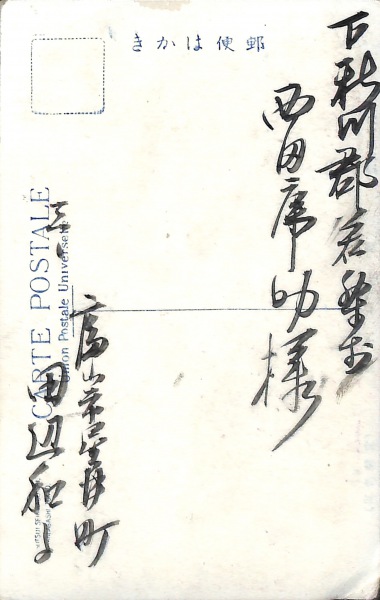 郵便はかき
下新川郡若栗村
西田席助様
富山市星井町
田辺和
CARTE POSTALE
Union Postale Universelle